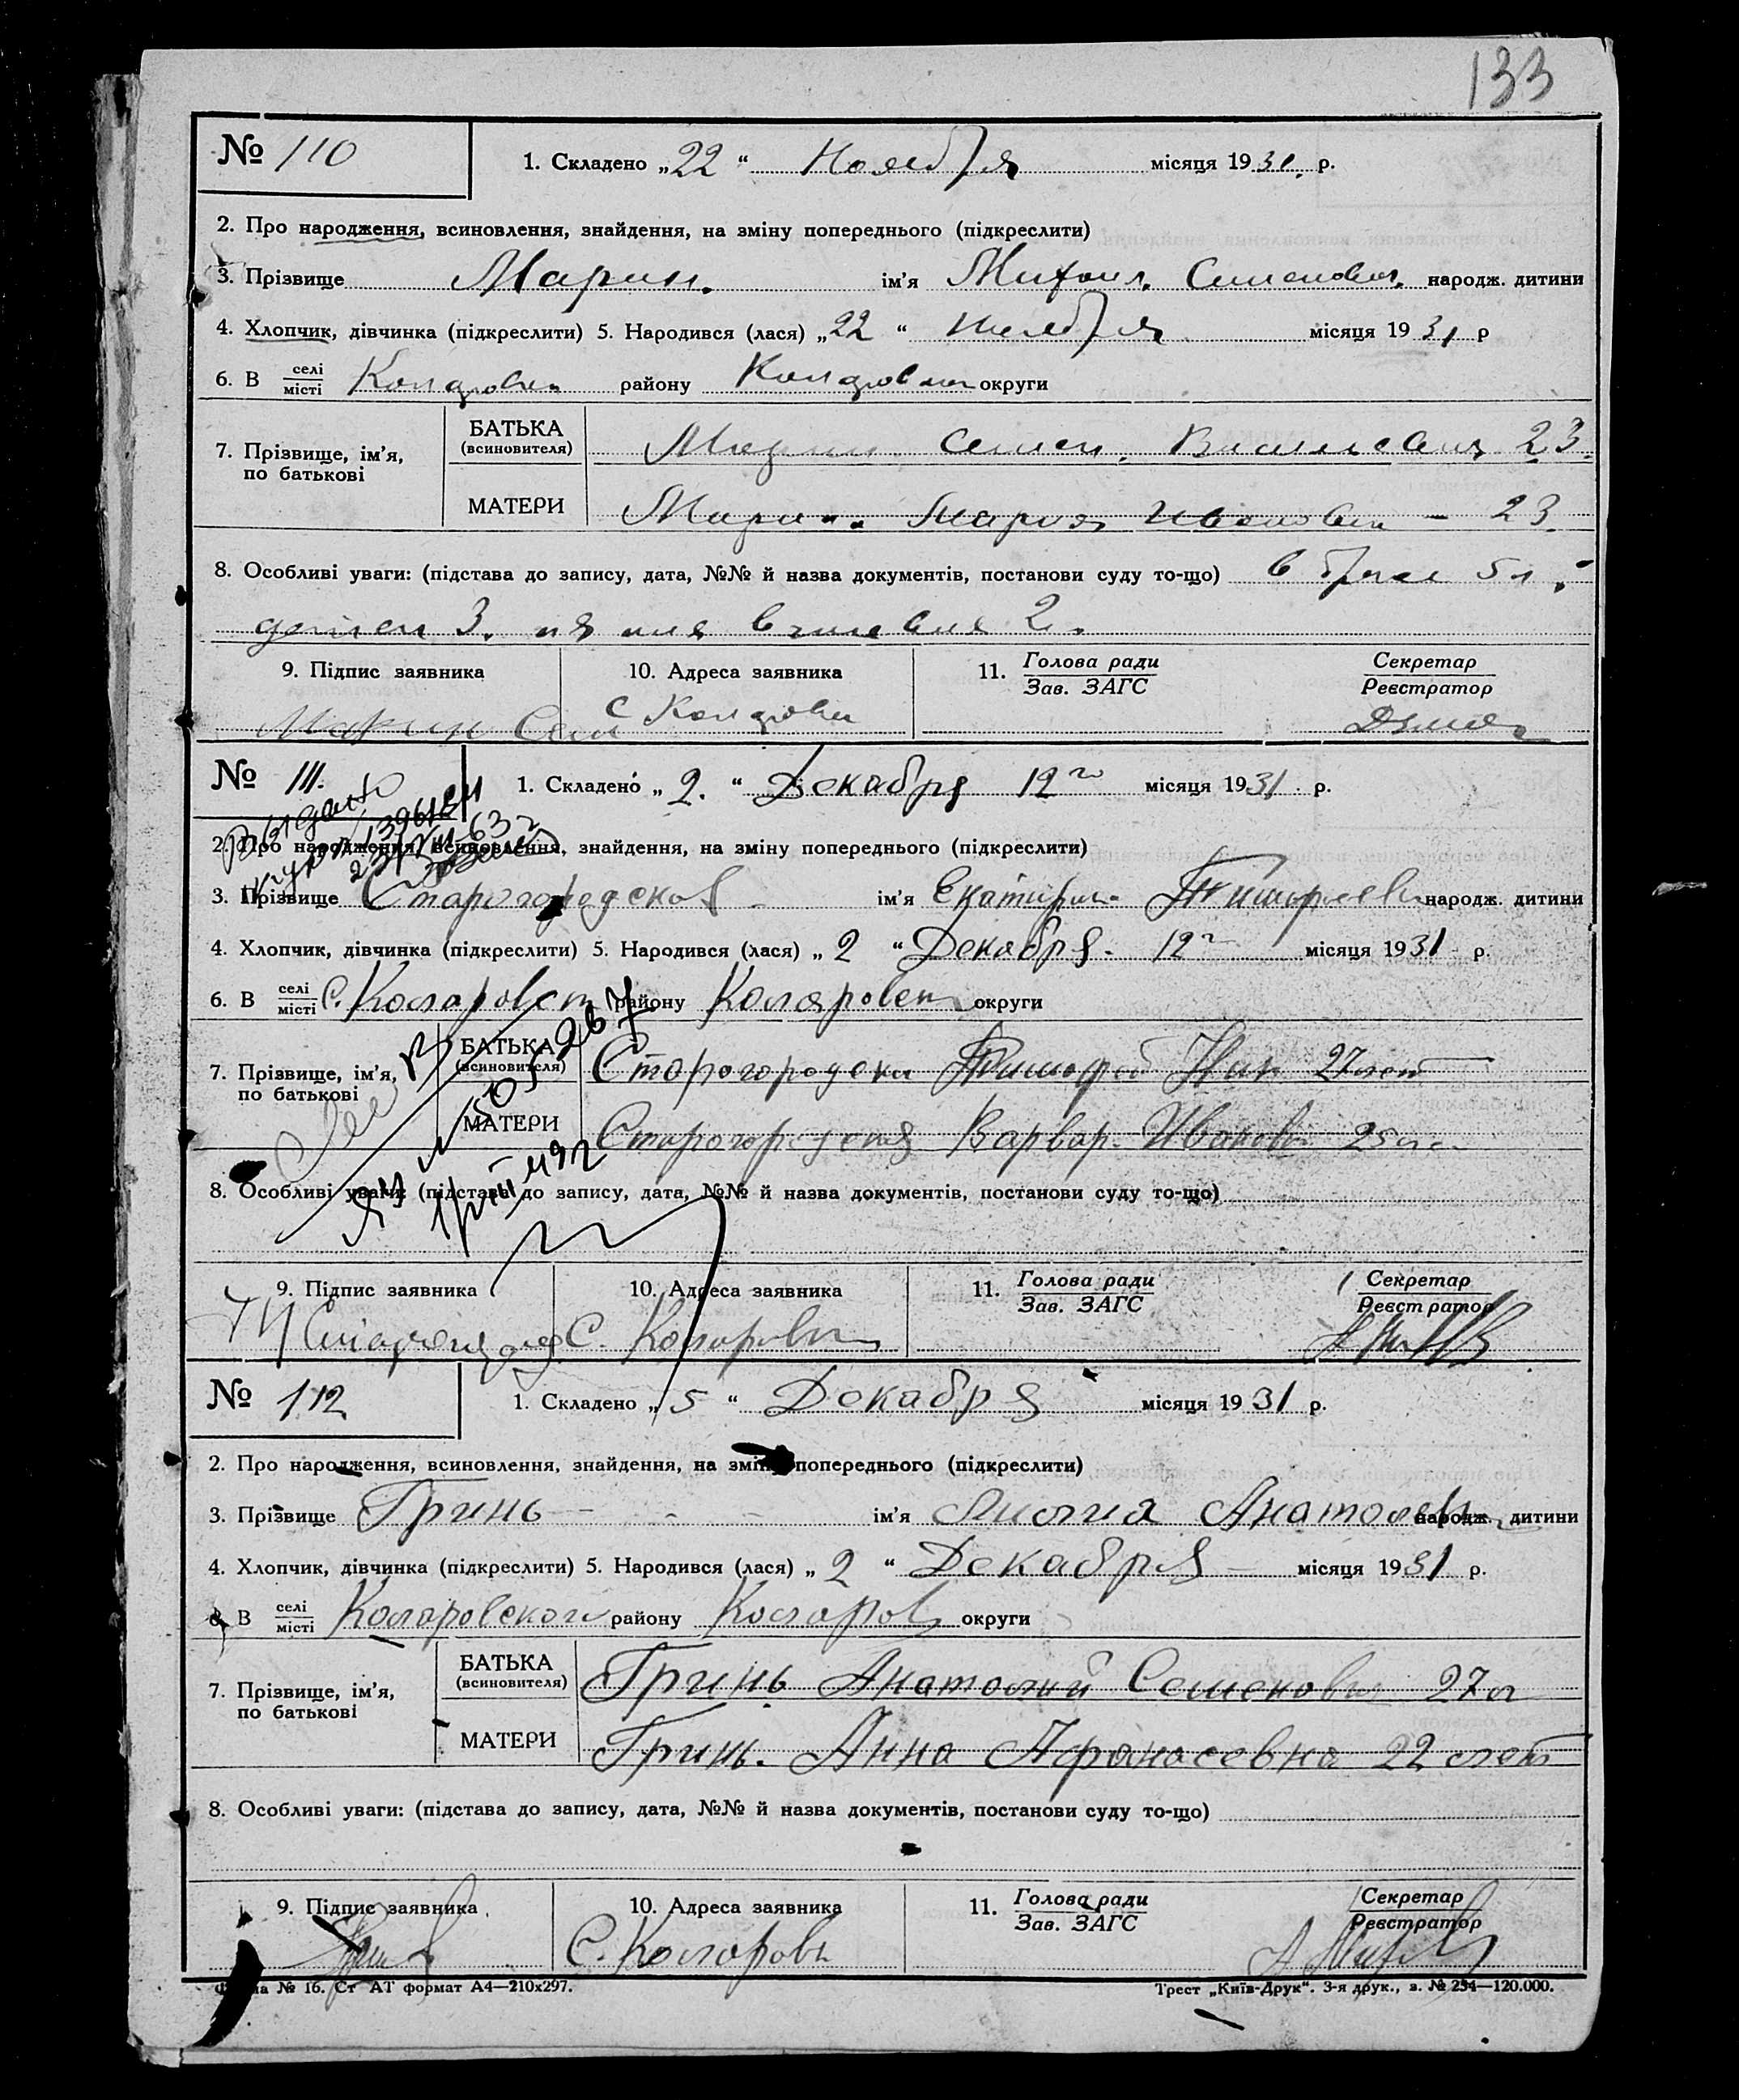 133
№ 110 1. Складено „22“ Ноября місяця 1931. р.
2. Про народження, всиновлення, знайдення, на зміну попереднього (підкреслити)
3. Прізвище Марин. ім'я Михаил. Семенович. народж. дитини
4. Хлопчик, дівчинка (підкреслити) 5. Народився (лася) „22“ ноября місяця 1931 р
6. В селі місті району округи
7. Прізвище, ім'я, по батькові
БАТЬКА (всиновителя) Марин Семен. Васильевич 23.
МАТЕРИ Марин. Мария Ивановна – 23.
8. Особливі уваги: (підстава до запису, дата, №№ й назва документів, постанови суду то-що) в браке 5 л.
детей 3. 2.
9. Підпис заявника 10. Адреса заявника 11. Голова ради Секретар
Зав. ЗАГС Реєстратор
Марин Сем с
№ 111. 1. Складено „2.“ Декабря 12 го місяця 1931. р.
Выдано
2. Про народження, всиновлення, знайдення, на зміну попереднього (підкреслити)
3. Прізвище Старогородской ім'я Екатирина народж. дитини
4. Хлопчик, дівчинка (підкреслити) 5. Народився (лася) „2“ Декабря. 12 г місяця 1931 р.
6. В селі місті С. Коларовст району Коларовск округи
7. Прізвище, ім'я, по батькові
БАТЬКА (всиновителя) Старогородски Тимофей Ник 27 лет
МАТЕРИ Старогородская Варвар. Иванов 25 л
8. Особливі уваги: (підстава до запису, дата, №№ й назва документів, постанови суду то-що)
9. Підпис заявника 10. Адреса заявника 11. Голова ради Секретар
Зав. ЗАГС Реєстратор
С. Коларовк
№ 112 1. Складено „5“ Декабря місяця 1931 р.
2. Про народження, всиновлення, знайдення, на зміну попереднього (підкреслити)
3. Прізвище Гринь ім'я Лилия Анатолевн народж. дитини
4. Хлопчик, дівчинка (підкреслити) 5. Народився (лася) „2“ Декабря місяця 1931 р.
6. В селі місті Коларовского району Коларов округи
7. Прізвище, ім'я, по батькові
БАТЬКА (всиновителя) Гринь Анатолий Семенович 27 л
МАТЕРИ Гринь. Анна Афанасевна 22 лет
8. Особливі уваги: (підстава до запису, дата, №№ й назва документів, постанови суду то-що)
9. Підпис заявника 10. Адреса заявника 11. Голова ради Секретар
Зав. ЗАГС Реєстратор
С. Коларовк
Форма № 16. Ст АТ формат А4—210х297. Трест „Київ-Друк“. 3-я друк., з. № 254—120.000.